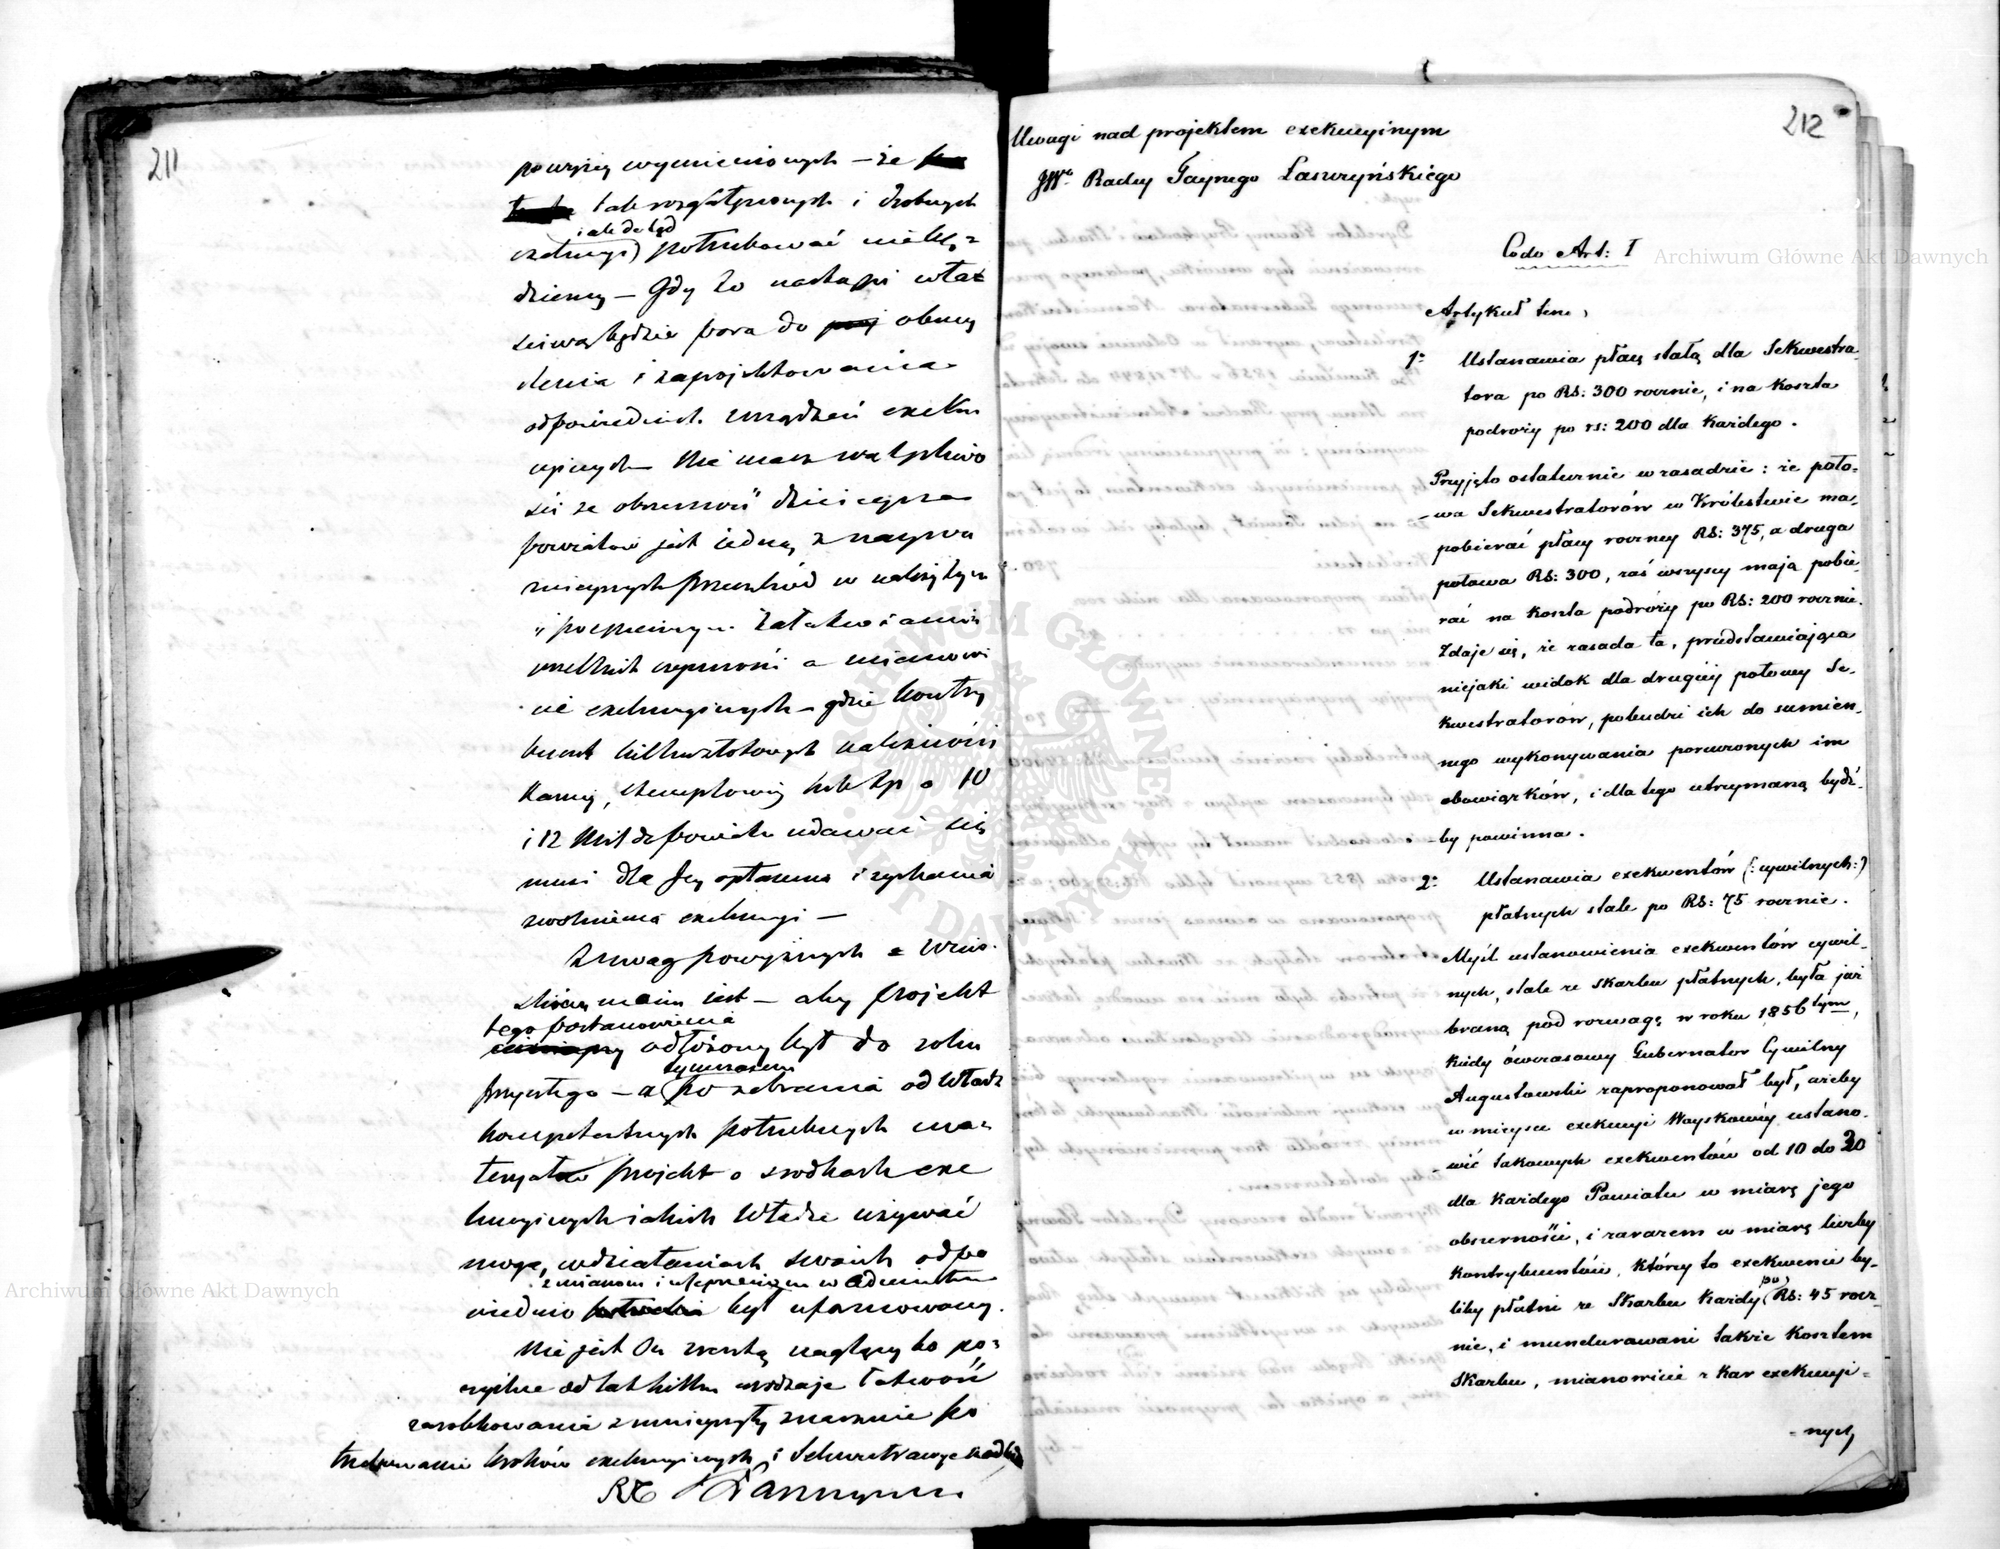 211
powyżej wymienionych — że
tak rozgałęzionych i drobnych
i ale dotąd
exekucyi) potrzebować nie będz=
dziemy — Gdy to nastąpi właś
ciwą będzie pora do obmy
ślenia i zaprojektowania
odpowiednich urządzeń exeku
cyjnych — Nie masz wątpliwo
ści że obszerność dzisiejsza
powiatów jest jedną z naywa
żnieyszych przeszkód w należytym
i pospiesznym załatwianiu
wszelkich czynności a mianowi
cie exekucyjnych — gdzie kontry
buent kilkuzłotowych należności
Karnej, stemplowej lub tp o 10
i 12 Mil do powiatu udawać się
musi dla jej opłacenia i zyskania
zwolnienia exekucyi —
Z uwag powyższych
moim jest — aby projekt
tego postanowienia
odłożony był do roku
tymczasem
przyszłego — a (po zebraniu od Władz
kompetentnych potrzebnych ma=
teryałów projekt o srodkach exe
kucyjnych jakich Władze używać
mogą, w działaniach swoich odpo
wiednio był uformowany.
Nie jest On zresztą naglący bo po=
myślne od lat kilku urodzaje łatwość
zarobkowania zmnieyszyły znacznie po
trzebowanie kroków exekucyjnych i Sekwestracye
RT Łaszczyński
212
Uwagi nad projektem exekucyinym
JWo. Radcy Taynego Łaszczyńskiego
Codo Art: I
Artykuł ten,
1o Ustanawia płacę stałą dla Sekwestra-
tora po RS: 300 rocznie, i na koszta
podroży po rs: 200 dla każdego.
Przyjęto ostatecznie w zasadzie: że poło=
-wa Sekwestratorów w Królestwie ma,
pobierać płacy roczney RS: 375, a druga
połowa RS: 300, zaś wszyscy mają pobie-
rać na koszta podróży po RS: 200 rocznie.
Zdaje się, że zasada ta, przedstawiająca
niejaki widok dla drugiéy połowy Se-
kwestratorów, pobudzi ich do sumien-
nego wykonywania poruczonych im
obowiązków, i dla tego utrzymaną bydź-
-by powinna.
2o Ustanawia exekwentów (:cywilnych:)
płatnych stale po RS: 75 rocznie.
Myśl ustanowienia exekwentów cywil-
nych, stale ze Skarbu płatnych, była już
braną pod rozwagę w roku 1856tym,
kiedy ówczasowy Gubernator Cywilny
Augustowski zaproponował był, ażeby
w mieyscu exekucyi Woyskowéy ustano-
-wić takowych exekwentów od 10 do 20
dla każdego Powiatu w miarę jego
obszerności, i zarazem w miarę liczby
kontrybuentów, którzy to exekwenci by-
po
liby płatni ze Skarbu każdy (RS: 45 rocz-
nie, i mundurowani także kosztem
Skarbu, mianowicie z kar exekucyi=
=nych
Archiwum Główne Akt Dawnych
Archiwum Główne Akt Dawnych
ARCHIWUM GŁÓWNE AKT DAWNYCH